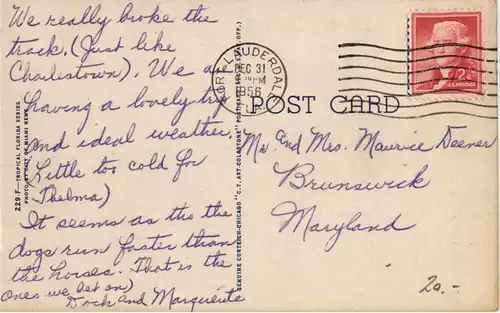 We really broke the
track. (Just like
Charlestown). We are
having a lovely trip
and ideal weather.
(Little too cold for
Thelma)
It seems as tho the
dogs run faster than
the horses. That is the
ones we bet on)
Dock and Marguerite
229-F—TROPICAL FLORIDA SERIES
GENUINE CURTEICH-CHICAGO "C.T. ART-COLORTONE" POST
FORT LAUDERDALE
DEC 31
PM
1956
2¢
U.S. POSTAGE
POST CARD
Mr. and Mrs. Maurice Deener
Brunswick
Maryland
20.-